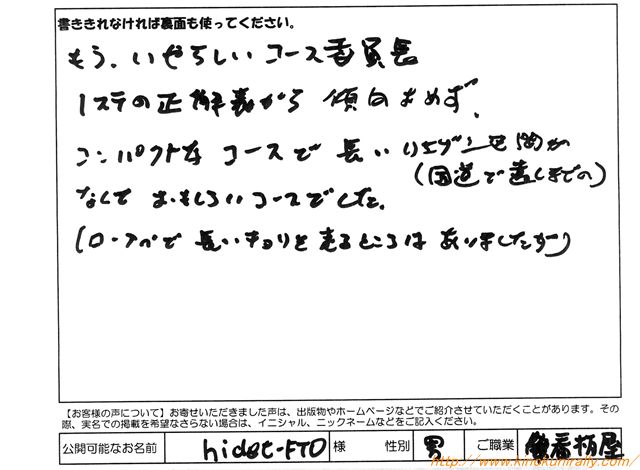 書ききれなければ裏面も使ってください。
もう、いやらしいコース委員長
1ステの正解表から 傾向よめず、
コンパクトな コースで 長い
(国道で までの)
なくて おもしろいコースでした。
(ロープで 長いキョリを走るところは ありましたが)
【お客様の声について】お寄せいただきました声は、出版物やホームページなどでご紹介させていただくことがあります。その
際、実名での掲載を希望なさらない場合は、イニシャル、ニックネームなどをご記入ください。
公開可能なお名前 hidet-FTO 様 性別 男 ご職業 看板屋
http://www.kinokunirally.com/